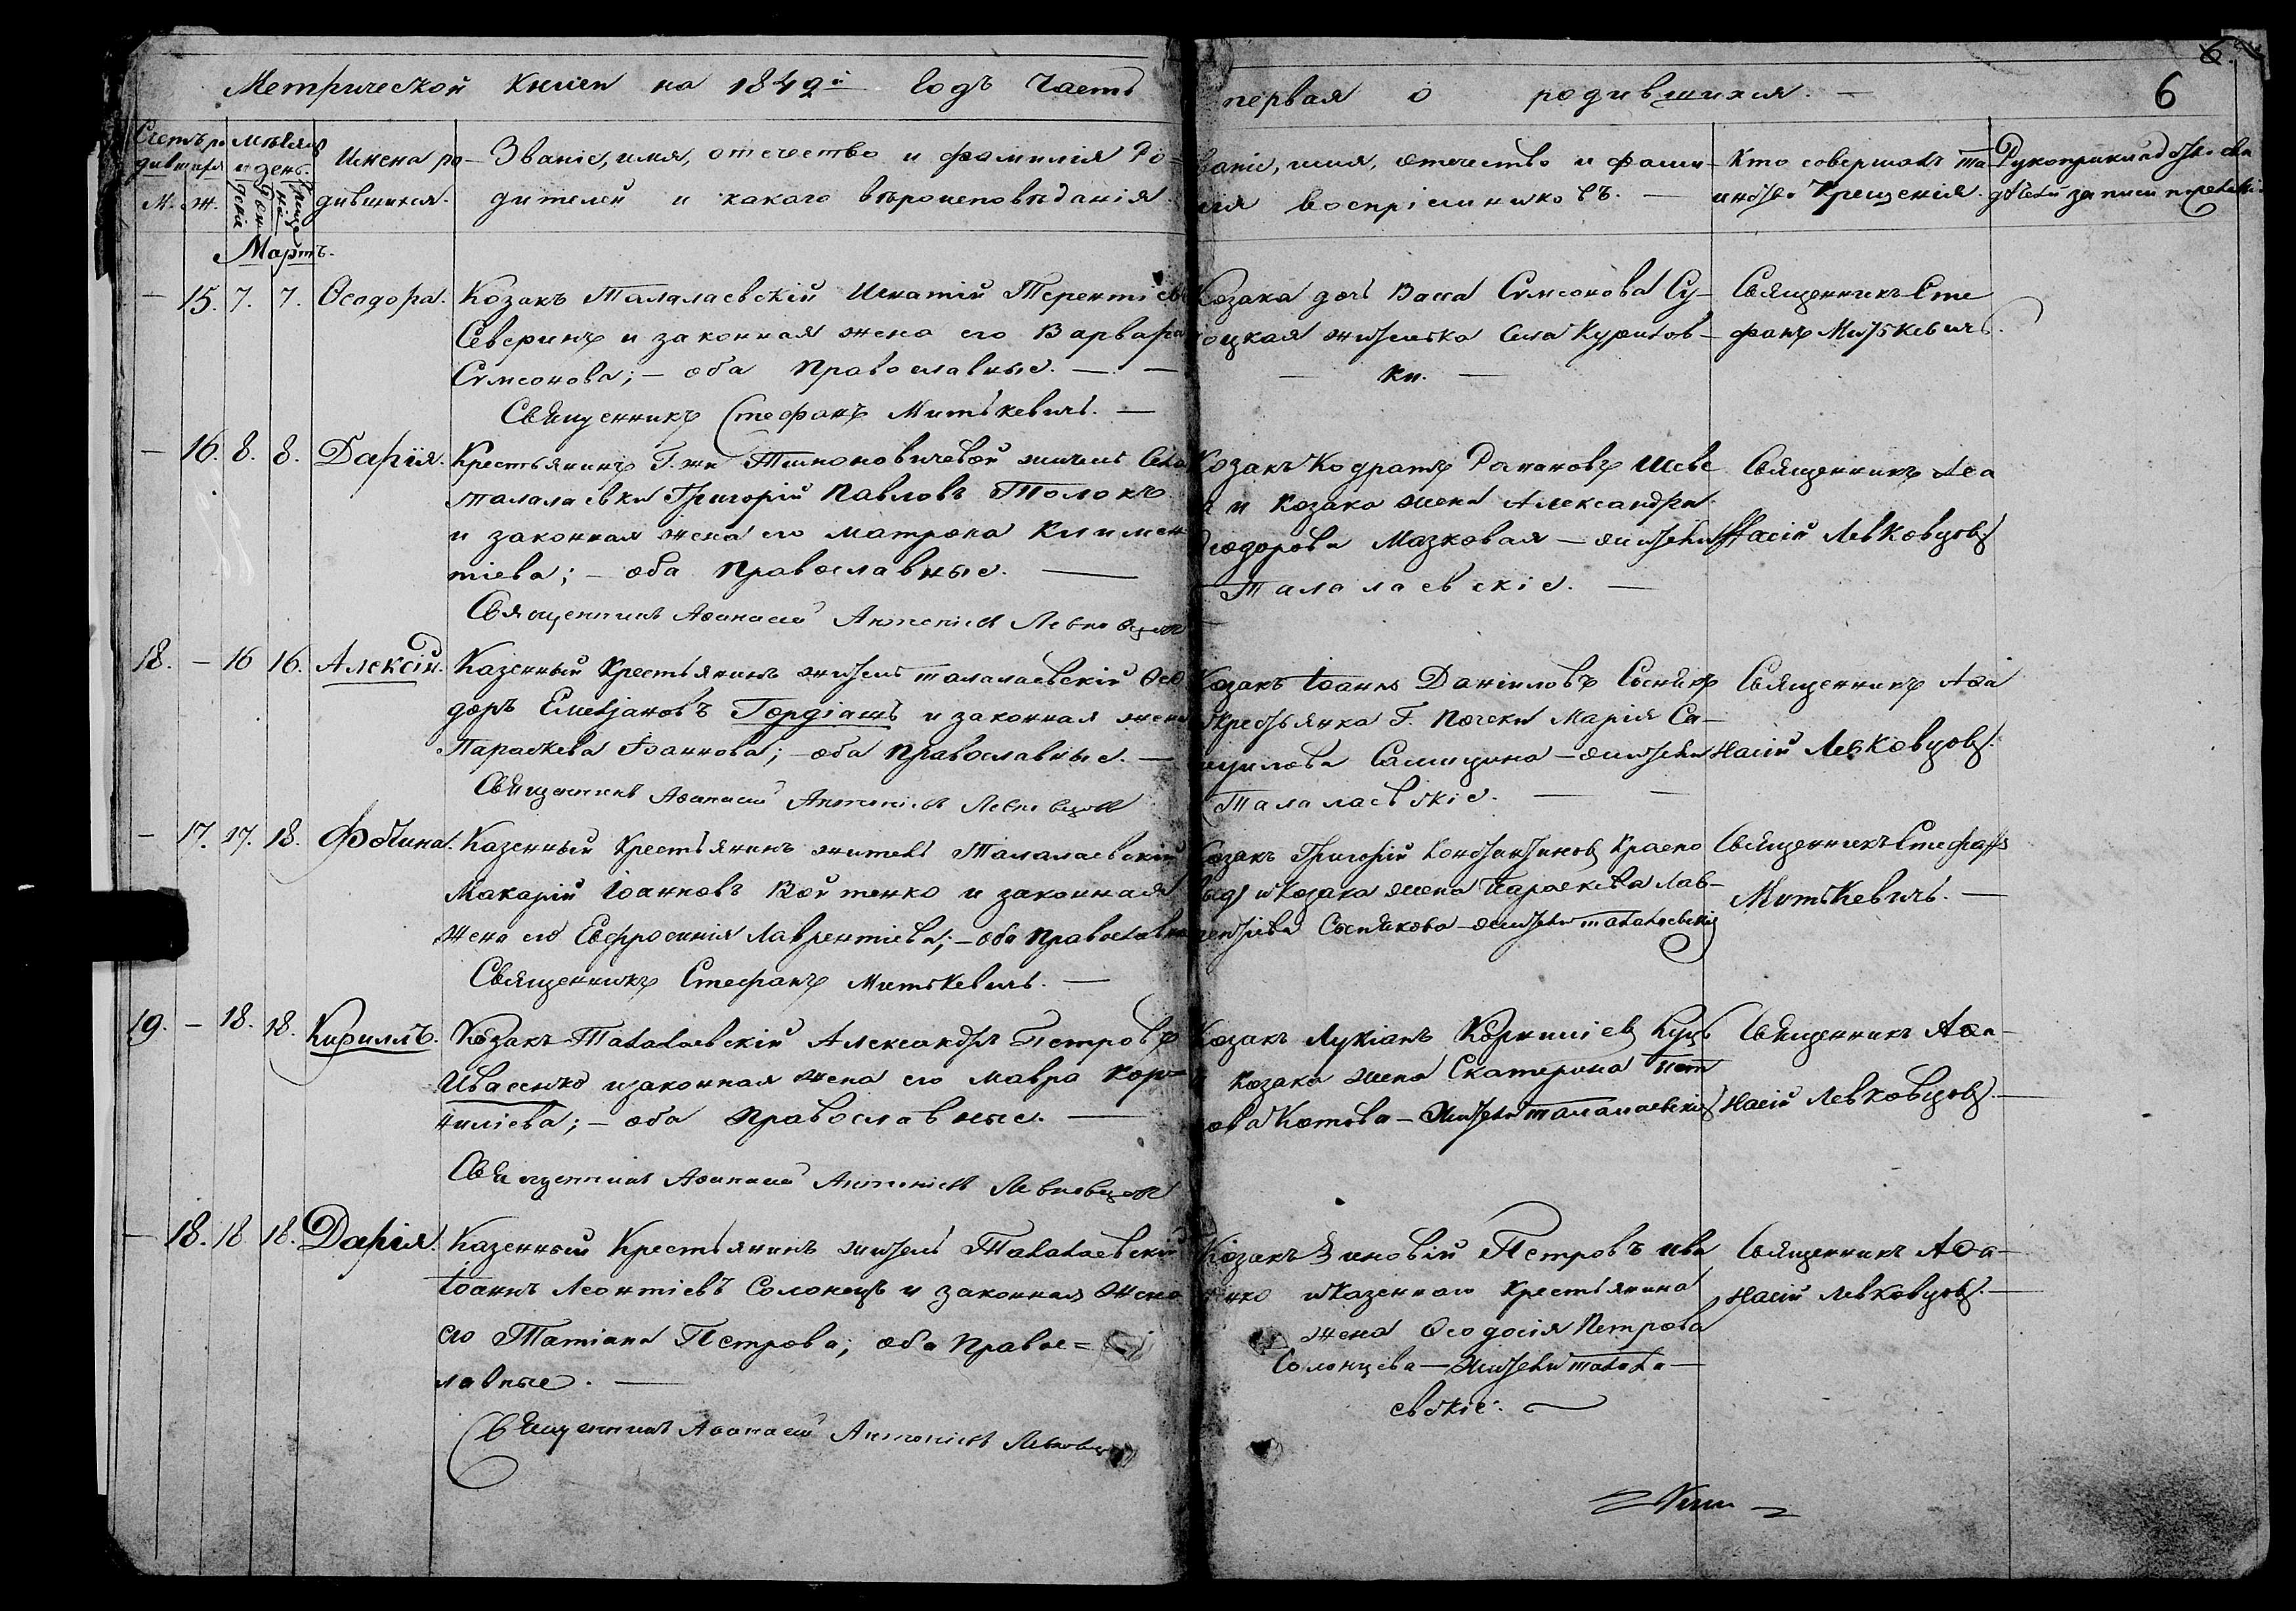 6
Метрической книги на 1849й годъ часть первая о родившихся. —
Счетъ ро-
дившихся
М. Ж.
Мѣсяцъ
и день.
Рожденія
Крещенія
Имена ро-
дившихся.
Званіе, имя, отечество и фамилія Ро=
дителей и какого вѣроисповѣданія.
Званіе, имя, отечество и фами-
лія воспріемниковъ. —
Кто совершалъ та
инство Крещенія.
Рукоприкладство сви
дѣтелей записи по желанію
Мартъ.
— 15. 7. 7. Ѳеодора.
Козакъ Талалаевскій Игнатій Терентіевъ
Северинъ и законная жена его Варвара
Сѵмеонова; — оба Православные. — —
Священникъ Стефанъ Митькевичъ. —
Козака дочь Васса Сѵмеонова Су-
роцкая жителька села Курилов-
— ки. —
Священникъ Сте
фанъ Митькевичъ.
— 16. 8. 8. Дарія.
Крестьянинъ Г. жи Тимоновичевой житель Села
Талалаевки Григорій Павловъ Толокъ
и законная жена его Матрона Климен-
тіева; — оба Православные. —
Священникъ Аѳанасій Антоніевъ Левковцовъ
Козакъ Кодратъ Романовъ Шевс
и Козака жена Александра
Ѳеодорова Мазковая — жители
— Талалаевскіе. —
Священникъ Аѳа
насій Левковцовъ
18. — 16 16. Алексій.
Казенный Крестьянинъ житель талалаевскій Ѳео
доръ Емельяновъ Гордіашъ и законная жена
Параскева Іоаннова; — оба Православные. —
Священникъ Аѳанасій Антоніевъ Левковцовъ
Козакъ Іоаннъ Даніиловъ Сосникъ
и крестьянка Г. Почеки Марія Са-
муилова Самицина — жители
Талалаевскіе. — —
Священникъ Аѳа
насій Левковцовъ.
— 17. 17. 18. Фотина.
Казенный Крестьянинъ житель Талалаевскій
Макарій Іоанновъ Войтенко и законная
жена его Евфросинія Лаврентіева; — оба Православн
Священникъ Стефанъ Митькевичъ. —
Козакъ Григорій Константиновъ Краепо
и Козака жена Параскева Лав-
рентіева Соснікова — жители талалаевскіе
Священникъ Стефанъ
Митькевичъ. —
19. — 18. 18. Кириллъ.
Козакъ Талалаевскій Александръ Петровъ
Ивасенко и законная жена его Мавра Кор=
ниліева; — оба Православные. —
Священникъ Аѳанасій Антоніевъ Левковцовъ
Козакъ Лукіанъ Корниліевъ Куць
и Козака жена Екатерина Пет
рова Котова — Жители талалаевскіе
Священникъ Аѳа-
насій Левковцовъ. —
— 18. 18 18. Дарія.
Казенный Крестьянинъ житель Талалаевскій
Іоаннъ Леонтіевъ Солонецъ и законная Жена
его Татіана Петрова; оба Право=
лавные. —
Священникъ Аѳанасій Антоніевъ Левковцовъ
Козакъ Зиновій Петровъ Ива
сенко и казеннаго Крестьянина
жена Ѳеодосія Петрова
Солонцева — Жители талала-
евскіе. —
Священникъ Аѳа-
насій Левковцовъ. —